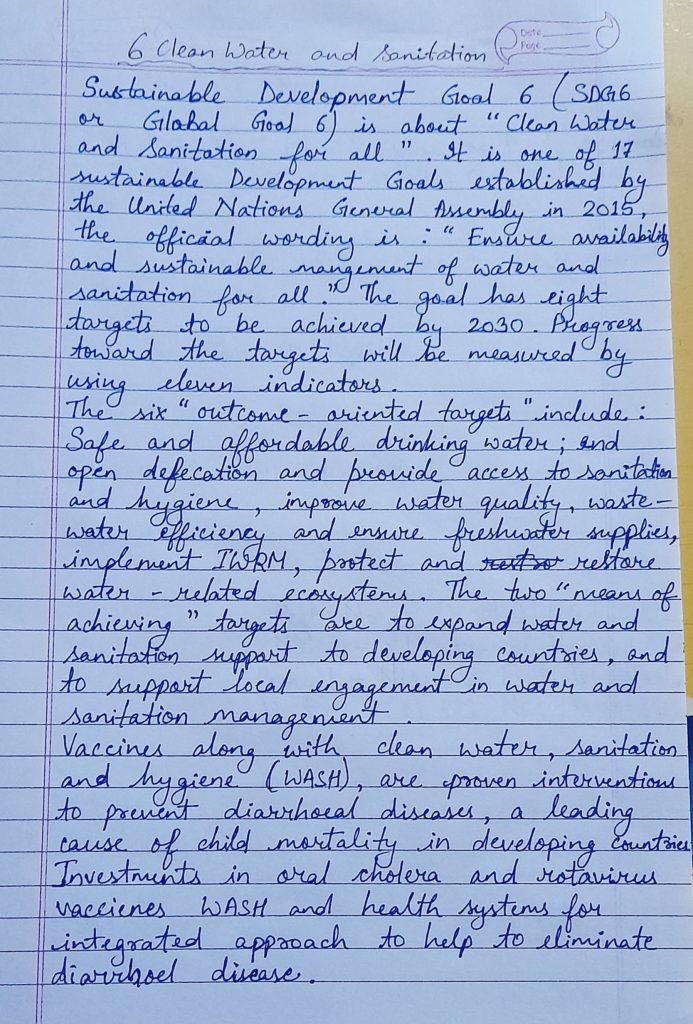 6 Clean Water and Sanitation
Date
Page
Sustainable Development Goal 6 (SDG6
or Glabal Goal 6) is about "Clean Water
and Sanitation for all". It is one of 17
sustainable Development Goals established by
the United Nations General Assembly in 2015,
the official wording is : "Ensure availability
and sustainable mangement of water and
sanitation for all." The goal has eight
targets to be achieved by 2030. Progress
toward the targets will be measured by
using eleven indicators.
The six "outcome - oriented targets" include :
Safe and affordable drinking water; end
open defecation and provide access to sanitation
and hygiene, improve water quality, waste-
water efficiency and ensure freshwater supplies,
implement IWRM, protect and restore
water - related ecosystems. The two "means of
achieving" targets are to expand water and
sanitation support to developing countries, and
to support local engagement in water and
sanitation management.
Vaccines along with clean water, sanitation
and hygiene (WASH), are proven interventions
to prevent diarrhoeal diseases, a leading
cause of child mortality in developing countries
Investments in oral cholera and rotavirus
vaccienes WASH and health systems for
integrated approach to help to eliminate
diarrhoel disease.